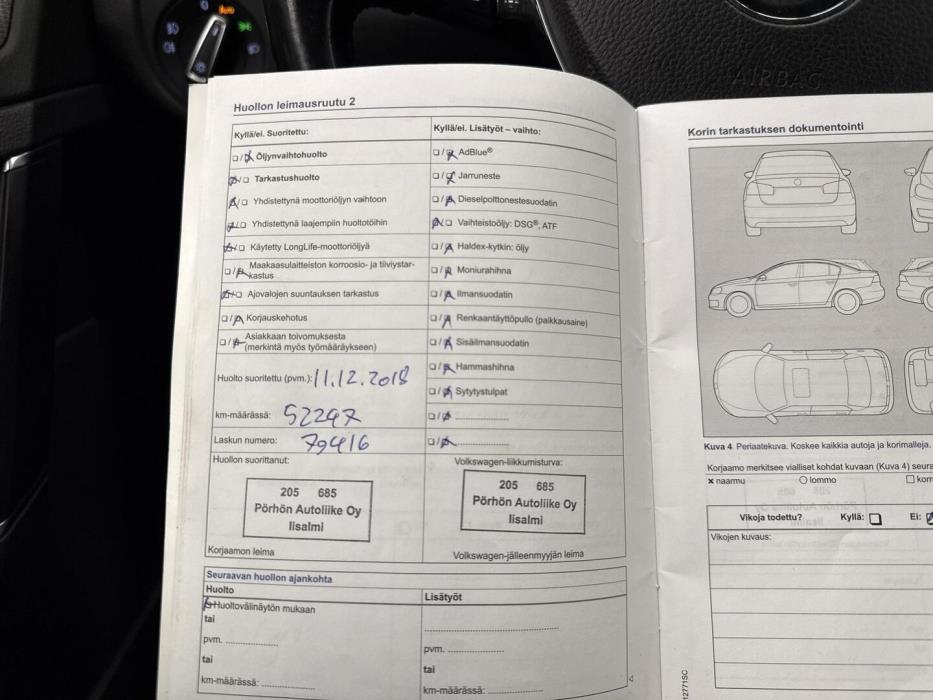 AIRBAG
Huollon leimausruutu 2
Kyllä/ei. Suoritettu:
Öljynvaihtohuolto
Tarkastushuolto
Yhdistettynä moottoriöljyn vaihtoon
Yhdistettynä laajempiin huoltotöihin
Käytetty LongLife-moottoriöljyä
Maakaasulaitteiston korroosio- ja tiiviystar-
kastus
Ajovalojen suuntauksen tarkastus
Korjauskehotus
Asiakkaan toivomuksesta
(merkintä myös työmääräykseen)
Huolto suoritettu (pvm.): 11.12.2018
km-määrässä: 52297
Laskun numero: 79416
Huollon suorittanut:
205 685
Pörhön Autoliike Oy
Iisalmi
Korjaamon leima
Kyllä/ei. Lisätyöt – vaihto:
AdBlue®
Jarruneste
Dieselpolttonestesuodatin
Vaihteistoöljy: DSG®, ATF
Haldex-kytkin: öljy
Moniurahihna
Ilmansuodatin
Renkaantäyttöpullo (paikkausaine)
Sisäilmansuodatin
Hammashihna
Sytytystulpat
Volkswagen-liikkumisturva:
205 685
Pörhön Autoliike Oy
Iisalmi
Volkswagen-jälleenmyyjän leima
Seuraavan huollon ajankohta
Huolto
Huoltovälinäytön mukaan
tai
pvm.
tai
km-määrässä:
Lisätyöt
pvm.
tai
km-määrässä:
Korin tarkastuksen dokumentointi
Kuva 4 Periaatekuva. Koskee kaikkia autoja ja korimalleja.
Korjaamo merkitsee vialliset kohdat kuvaan (Kuva 4)
x naarmu
lommo
Vikoja todettu? Kyllä: Ei:
Vikojen kuvaus: